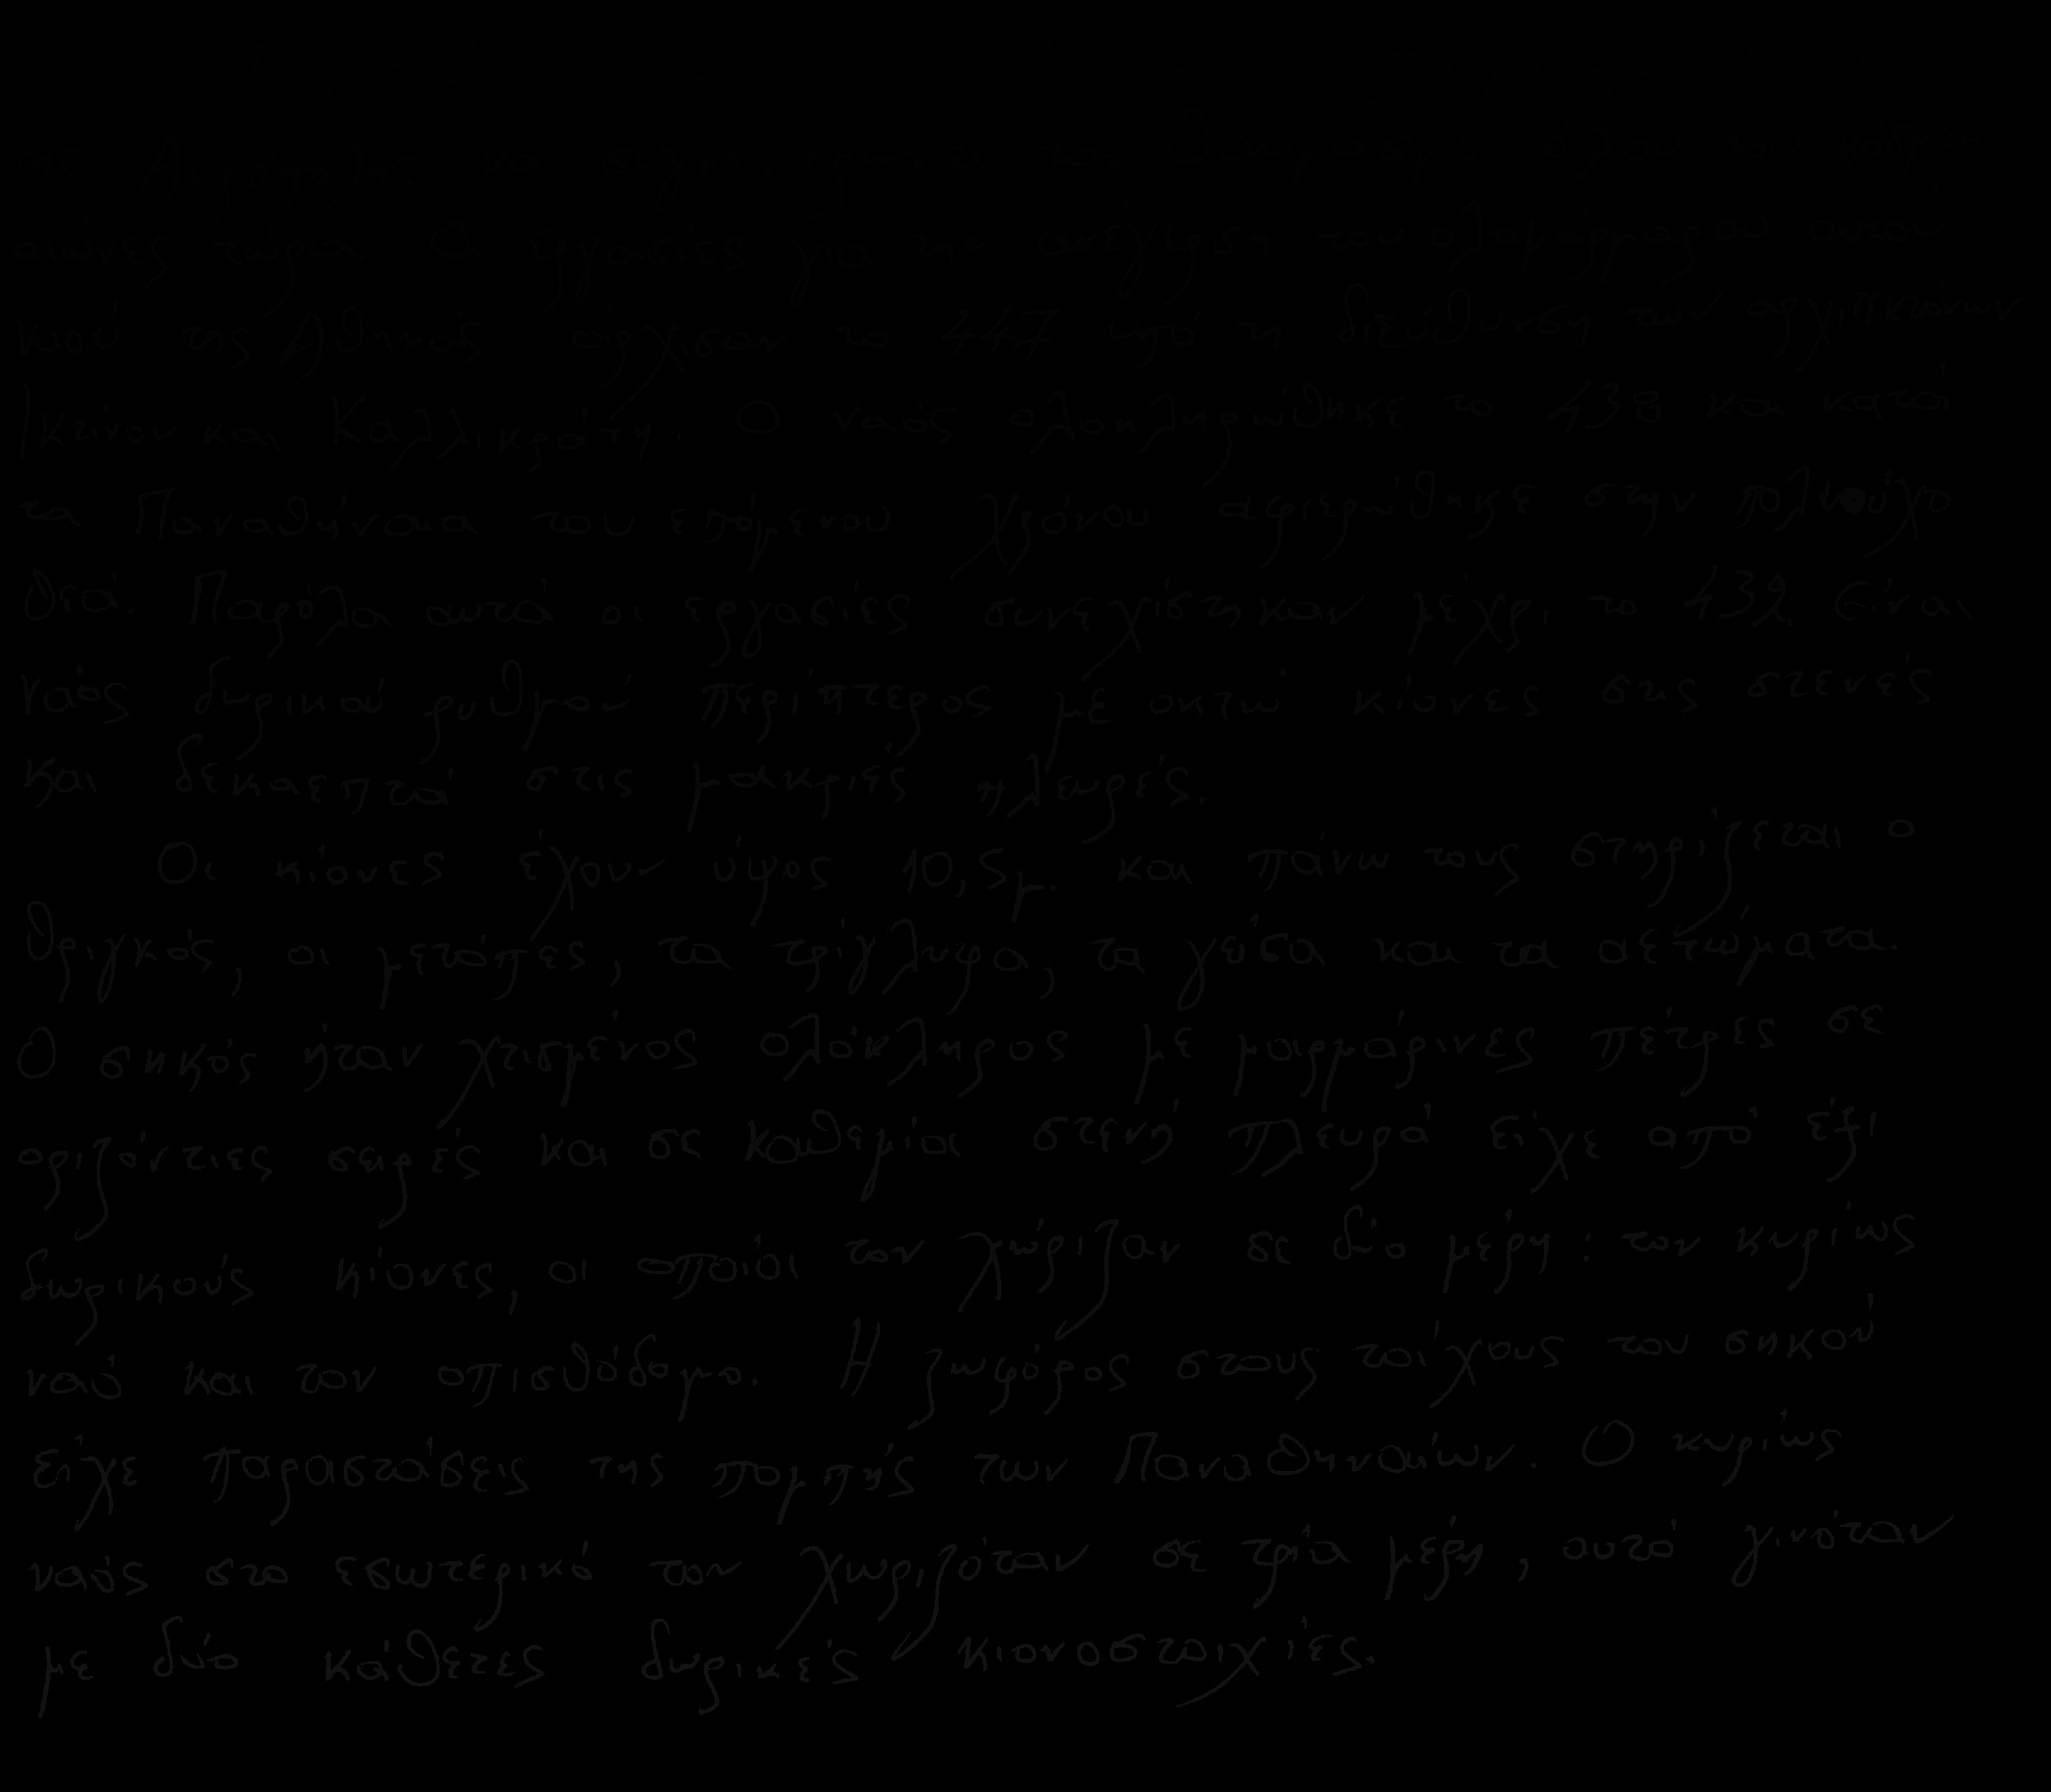 της Ακρόπολης και συγκεντρώνει τον θαυμασμό όλου του κόσμου
αιώνες τώρα Οι εργασίες για την ανέγερση του ολομάρμαρου αυτού
ναού της Αθηνάς άρχισαν το 447 υπό τη διεύθυνση των αρχιτεκτόνων
Ικτίνου και Καλλικράτη. Ο ναός ολοκληρώθηκε το 438 και κατά
τα Παναθήναια του επόμενου χρόνου αφιερώθηκε στην πολιούχο
θεά. Παρόλα αυτά οι εργασίες συνεχίστηκαν μέχρι το 432. Είναι
ναός δωρικού ρυθμού περίπτερος με οκτώ κίονες στις στενές
και δεκαεπτά στις μακριές πλευρές.
Οι κίονες έχουν ύψος 10,5μ. και πάνω τους στηρίζεται ο
θριγκός, οι μετόπες, τα τρίγλυφα, τα γείσα και τα αετώματα.
Ο σηκός ήταν χτισμένος ολόκληρος με μαρμάρινες πέτρες σε
οριζόντιες σειρές και σε καθεμία στενή πλευρά είχε από έξι
δωρικούς κίονες, οι οποίοι τον χώριζαν σε δύο μέρη: τον κυρίως
ναό και τον οπισθόδομο. Η ζωφόρος στους τοίχους του σηκού
είχε παραστάσεις της πομπής των Παναθηναίων. Ο κυρίως
ναός στο εσωτερικό του χωριζόταν σε τρία μέρη, αυτό γινόταν
με δύο κάθετες δωρικές κιονοστοιχίες.